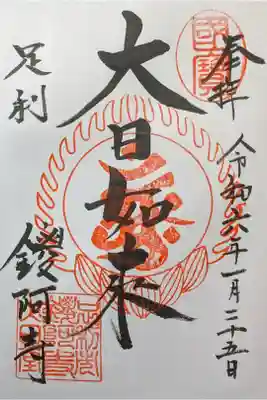 奉拝
令和六年一月二十五日
大日如来
足利
鑁阿寺
國寶